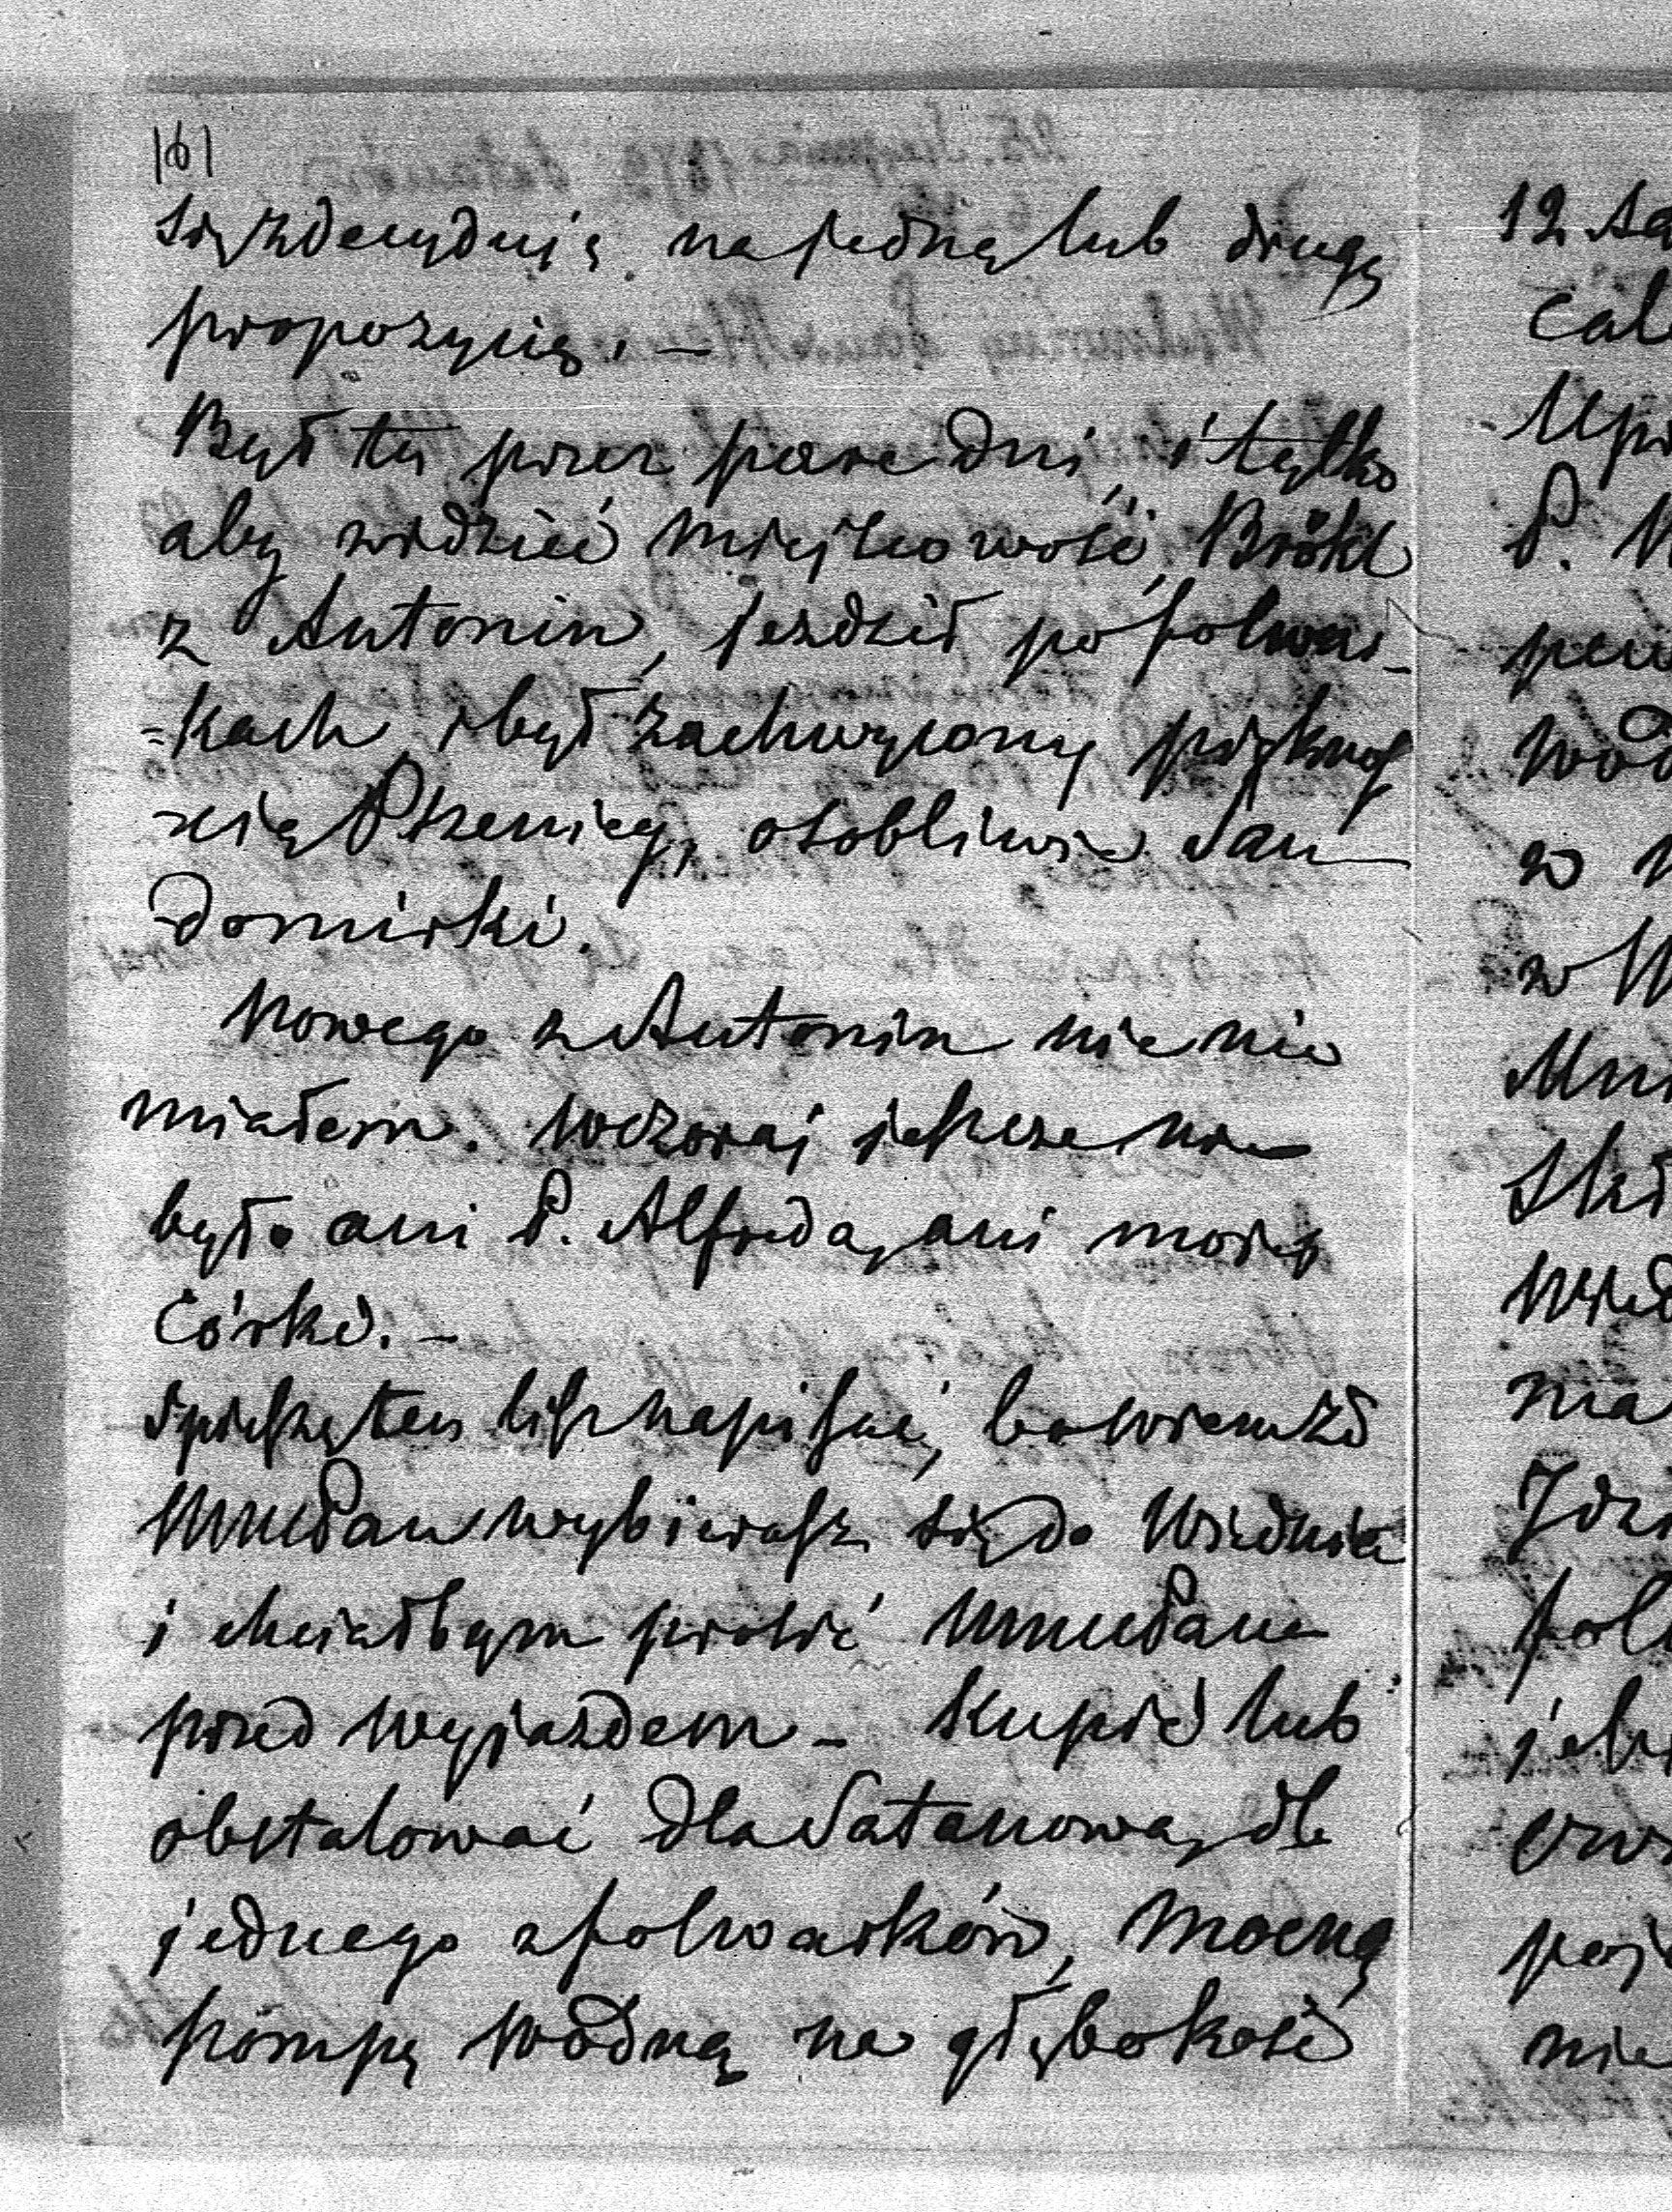 się zdecydują na jedną lub drugą
propozycię. —
Był tu przez parę dni, i tylko
aby widzieć miejscowość, Brökl
z Antonin, jeździł po folwar-
=kach, i był zachwycony pięknoś
-cią Pszenicy, osobliwie San-
-domirki.
Nowego z Antonin nic nie
miałem. Wczoraj jeszcze nie
było ani P. Alfreda, ani mojej
Córki. —
Spieszę ten list napisać, bo wiem że
WWPan wybierasz się do Wiednia
i chciałbym prosić WWPana
przed wyjazdem — kupić lub
obstalować dla Satanowa, dla
jednego z folwarków, mocną
pompę wodną na głębokość
12 są
P. W
w W